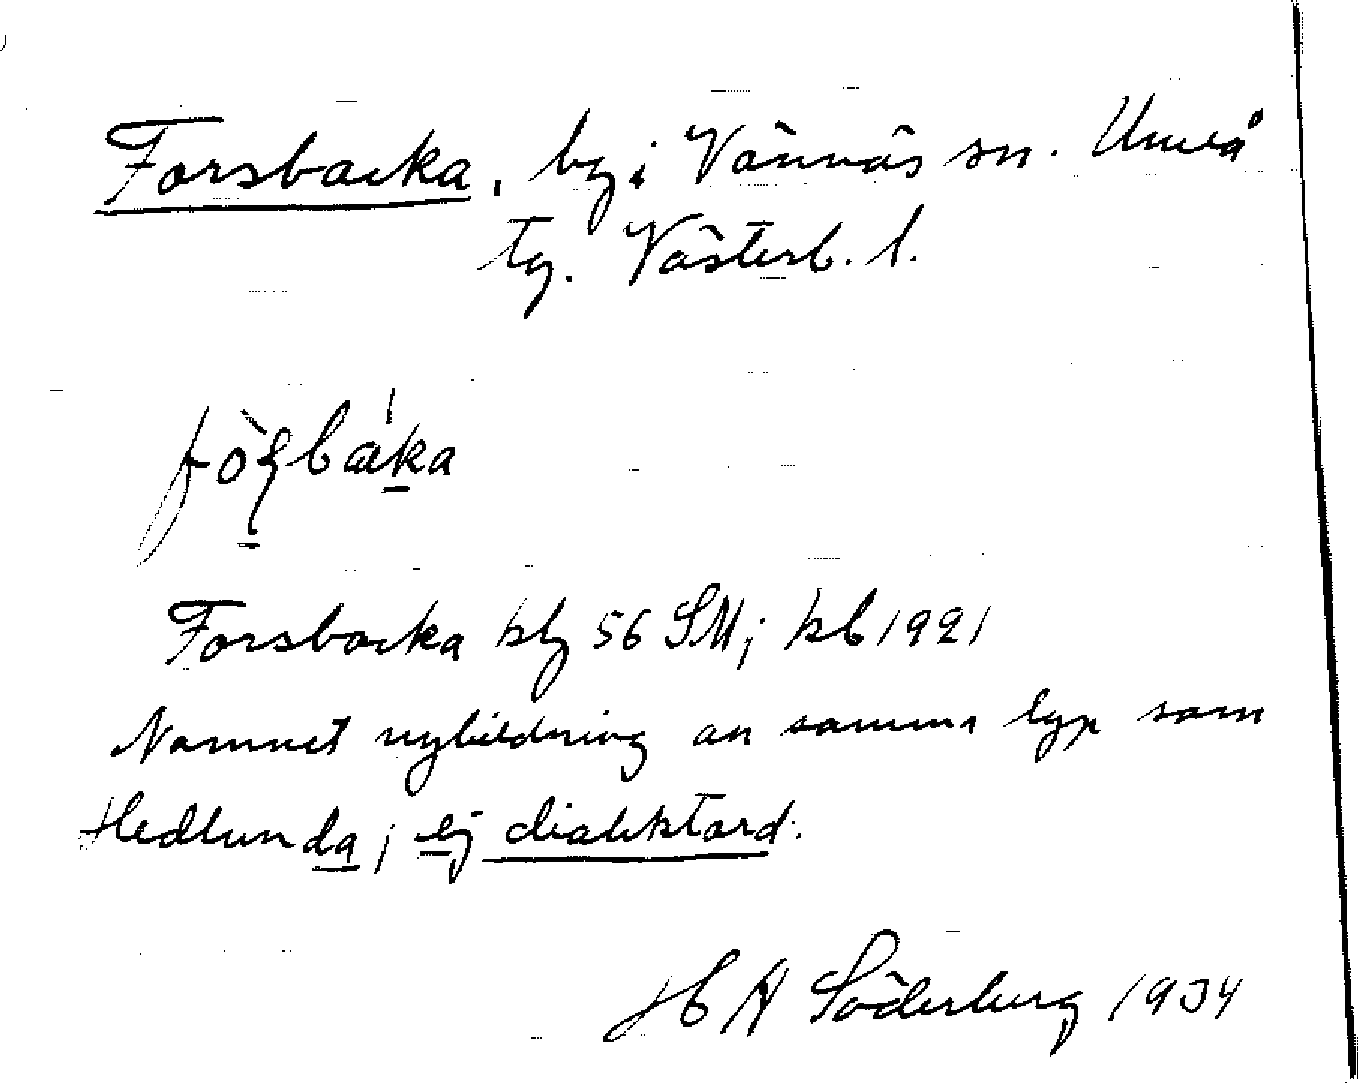 Forsbacka, by i Vännäs sn. Umeå
tg. Västerb. l.
Forsbacka kbg 56 SM; kb 1921
Namnet nybildning av samma typ som
Hedlunda; ej dialektord.
H A Söderberg 1934